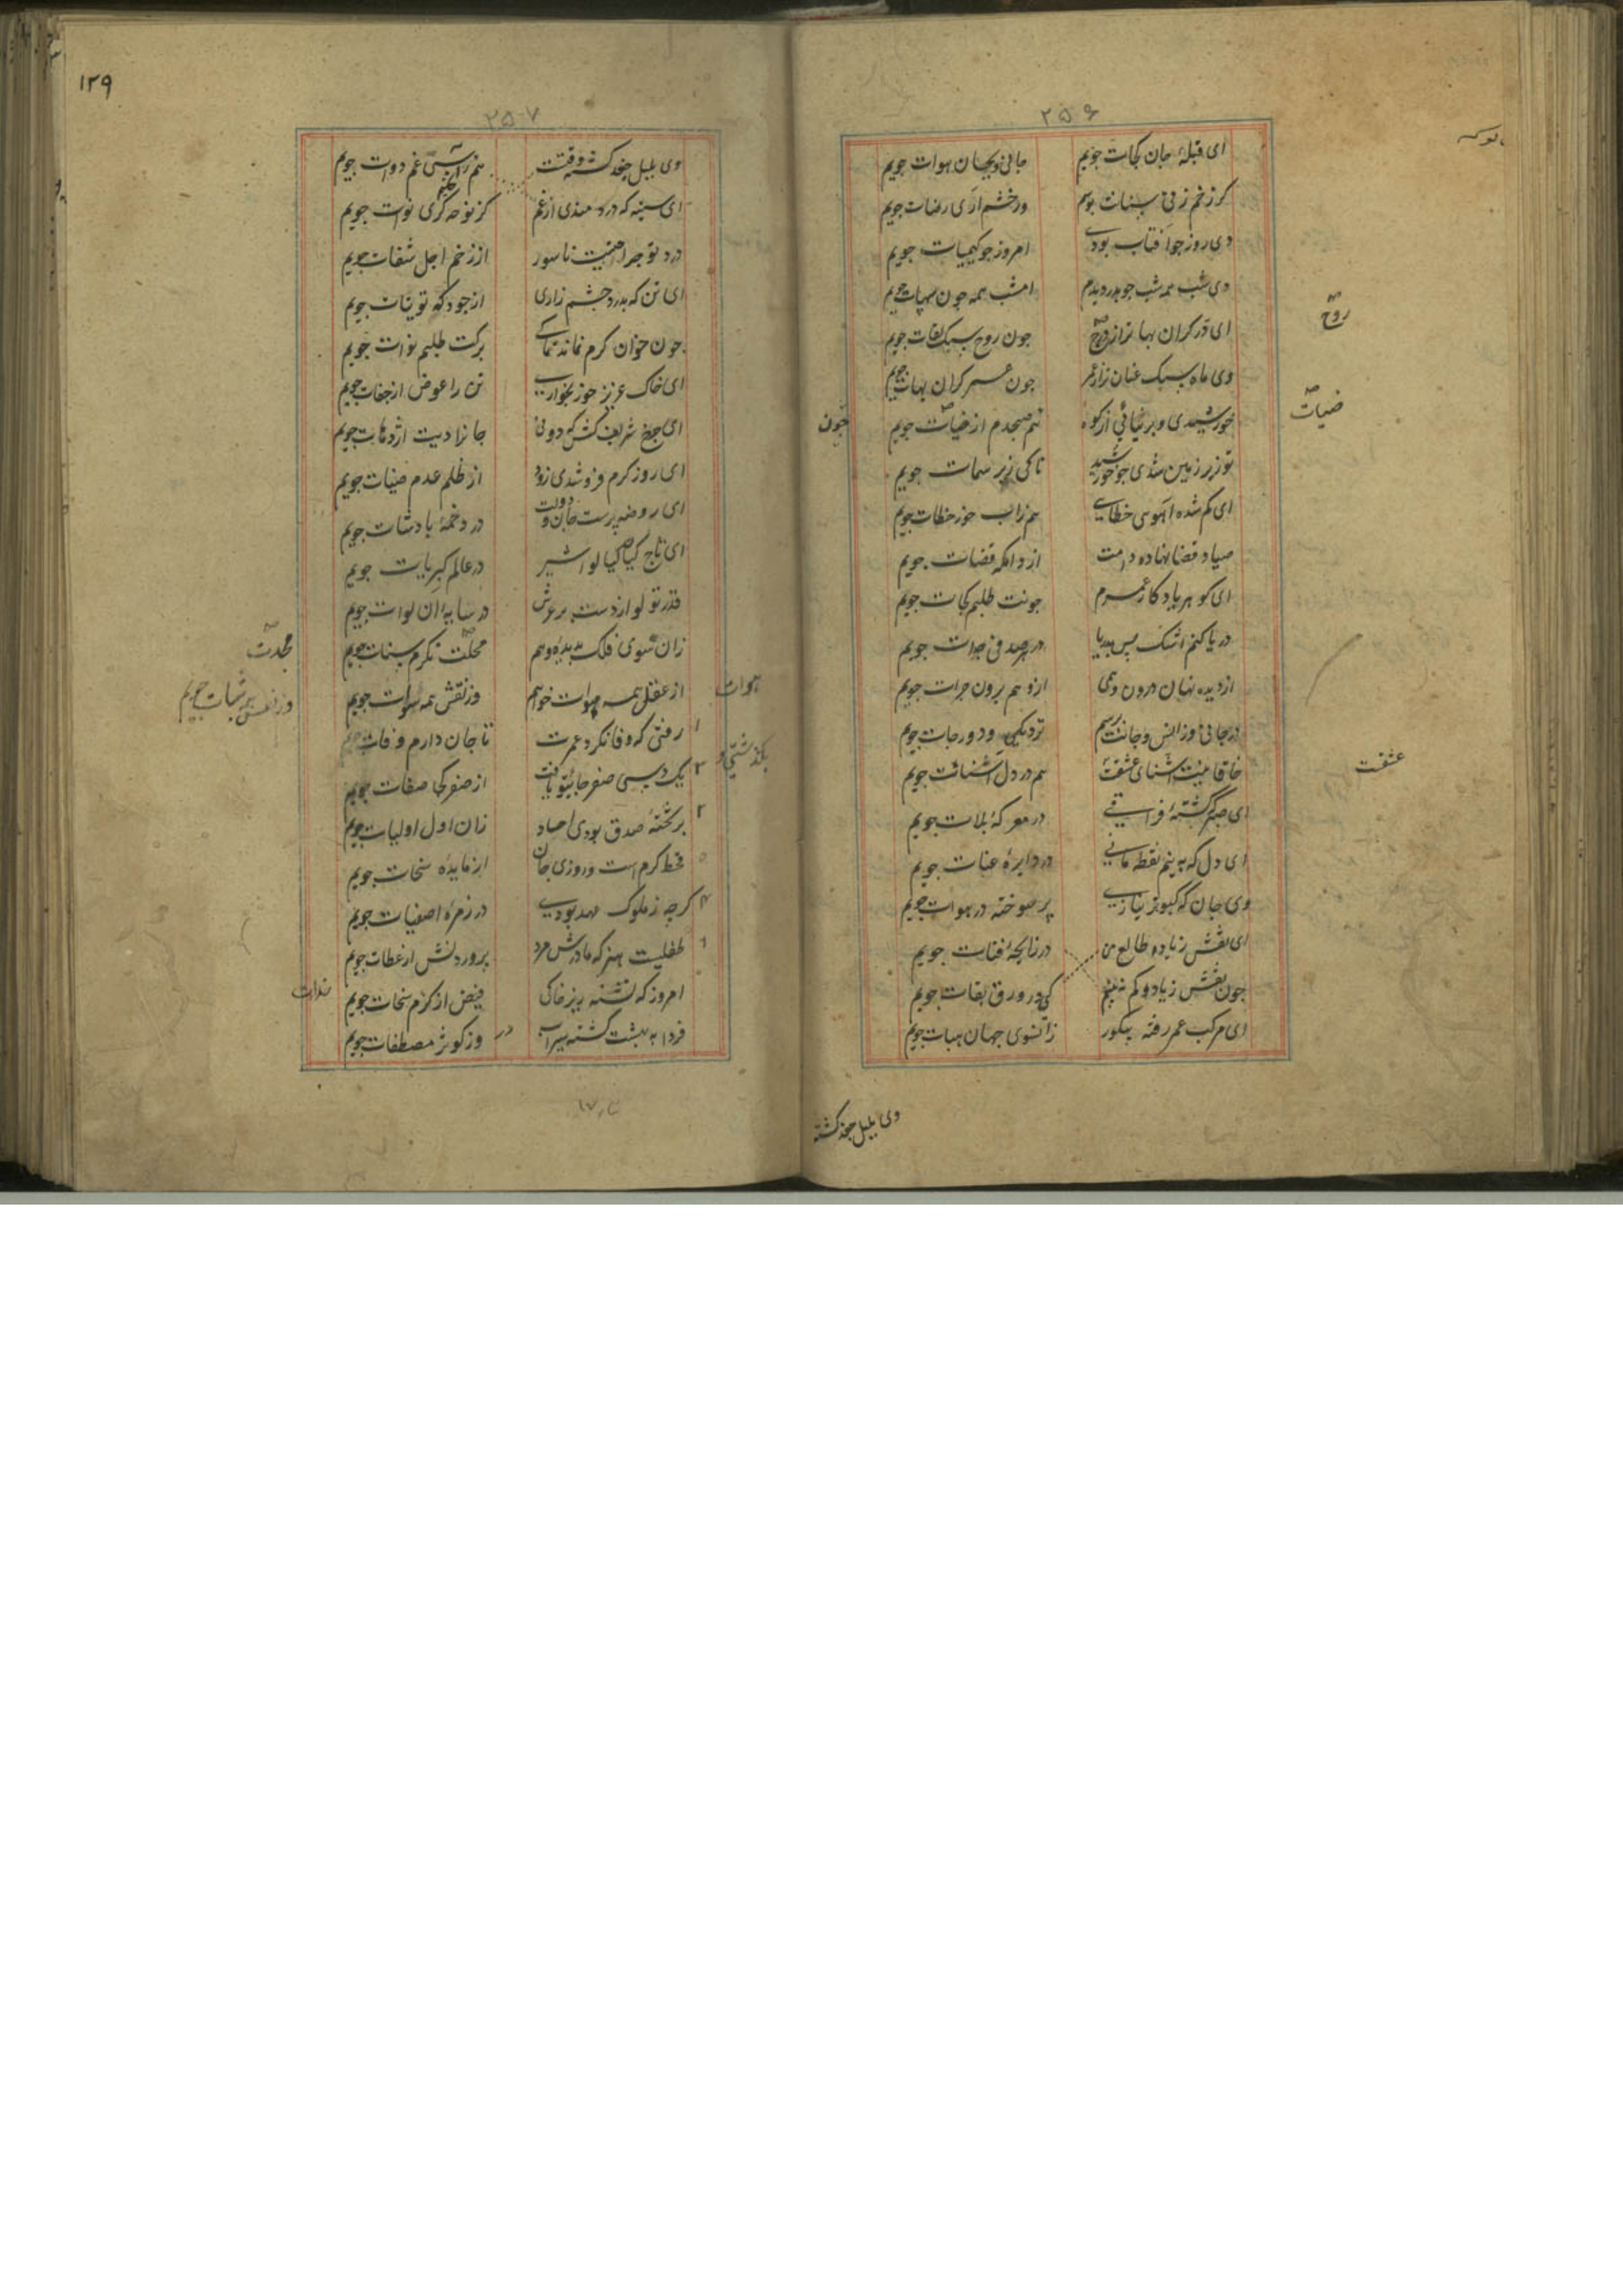 ۲۵۶
ای قبلهٔ جان کجات جویم جانی و بجان هوات جویم
کر زخم زنی سنانت بوسم ور خشم آری رضات جویم
دی روز جو آفتاب بودی امروز جو کیمیات جویم
دی شب همه شب جو بدر دیدم امشب همه جون سهات جویم
ای در کران بهاتر از روح جون روح سبک لقات جویم
وی ماه سبک عنان تر از عمر جون عمر کران بهات جویم
خورشیدی و بر نیائی از کوه هم صبحدم از ضیات جویم
تو زیر زمین شدی جو خورشید تا کی زیر سمات جویم
ای کم شده آهوی خطایی هم زآب خور خطات جویم
صیاد قضا نهاده دامت از دامکه قضات جویم
ای کوهر یادکار عمرم جونت طلبم کجات جویم
دریا کنم اشک بس بدریا در هر صدفی جدات جویم
از دیده نهان درون وهمی از وهم برون جرات جویم
در جانی و ز انس و جانت پرسم نزدیکی و دور جات جویم
خاقانیت آشنای عشقت هم در دل آشنات جویم
ای جکر کشتهٔ فراقی در معرکهٔ بلات جویم
ای دل که به نیم نقطه مانی در دایرهٔ عنات جویم
وی جان که کبوتر نیازی بر سوخته در هوات جویم
ای نقش زیاده طالع من در زایجهٔ فنات جویم
جون نقش زیاد و کم نه بینم کی در ورق بقات جویم
ای مرکب عمر رفته بیکور زآنسوی جهان هبات جویم
روح
ضیات
جون
عشقت
وی بلبل جغد کشته
۱۲۹
۲۵۷
وی بلبل جغد کشته وقتت هم زآتش غم دوات جویم
ای سینه که دردمندی از غم کز نوحه کری نوات جویم
درد تو جراحتیت ناسور از زخم اجل شفات جویم
ای تن که بدرد جشم زاری از جود که توتیات جویم
جون خوان کرم نماند تا کی برکت طلبم نوات جویم
ای خاک عزیز خور بخواری تن را عوض از جفات جویم
ای جرخ شریف کش که دونی جانرا دیت اژدهات جویم
ای روز کرم فرو شدی زود از ظلم عدم ضیات جویم
ای روضه پرست جان و دولت در دخمهٔ بادشات جویم
ای تاج کیا کیا لواشیر در عالم کبریات جویم
قدر تو لوا زدست بر عرش در سایه آن لوات جویم
زان سوی فلک بدیدهٔ وهم محلت نکرم سنات جویم
از عقل همه هوات خواهم وز نقش همه سوات جویم
۱ رفتی که وفا نکرد عمرت تا جان دارم وفات جویم
۳ یک دبسی صفر جائی تو یافت از صفر کجا صفات جویم
۲ بر تختهٔ صدق بودی احاد زان اول اولیات جویم
۵ قحط کرم است و روزی جان از مایدهٔ سخات جویم
۴ کرجه ز ملوک عهد بودی در زمرهٔ اصفیات جویم
۶ طفلیست هنر که مادرش مرد پروردنش از عطات جویم
امروز که تشنه زیر خاکی فیض از کرم سخات جویم
فردا به بهشت کشته سیراب وز کوثر مصطفات جویم
هوات
مجدت
وز نفس همه ثبات جویم
بکذشتی و
خدات
در